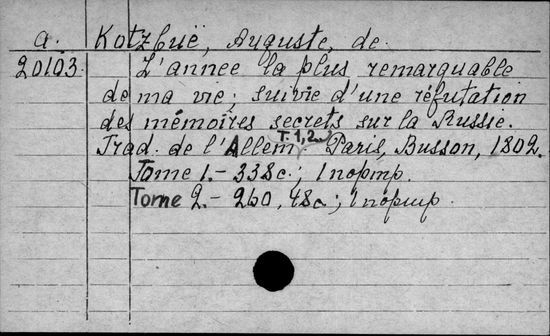 a. Kotzbuë, Auguste, de.
20103. L'année la plus remarquable
de ma vie; suivie d'une réfutation
des mémoires secrets sur la Russie.
T. 1, 2.
Trad. de l'Allem. Paris, Busson, 1802.
Tome 1. - 338 с.; 1 порт.
Tome 2. - 260, 48 с.; 1 порт.